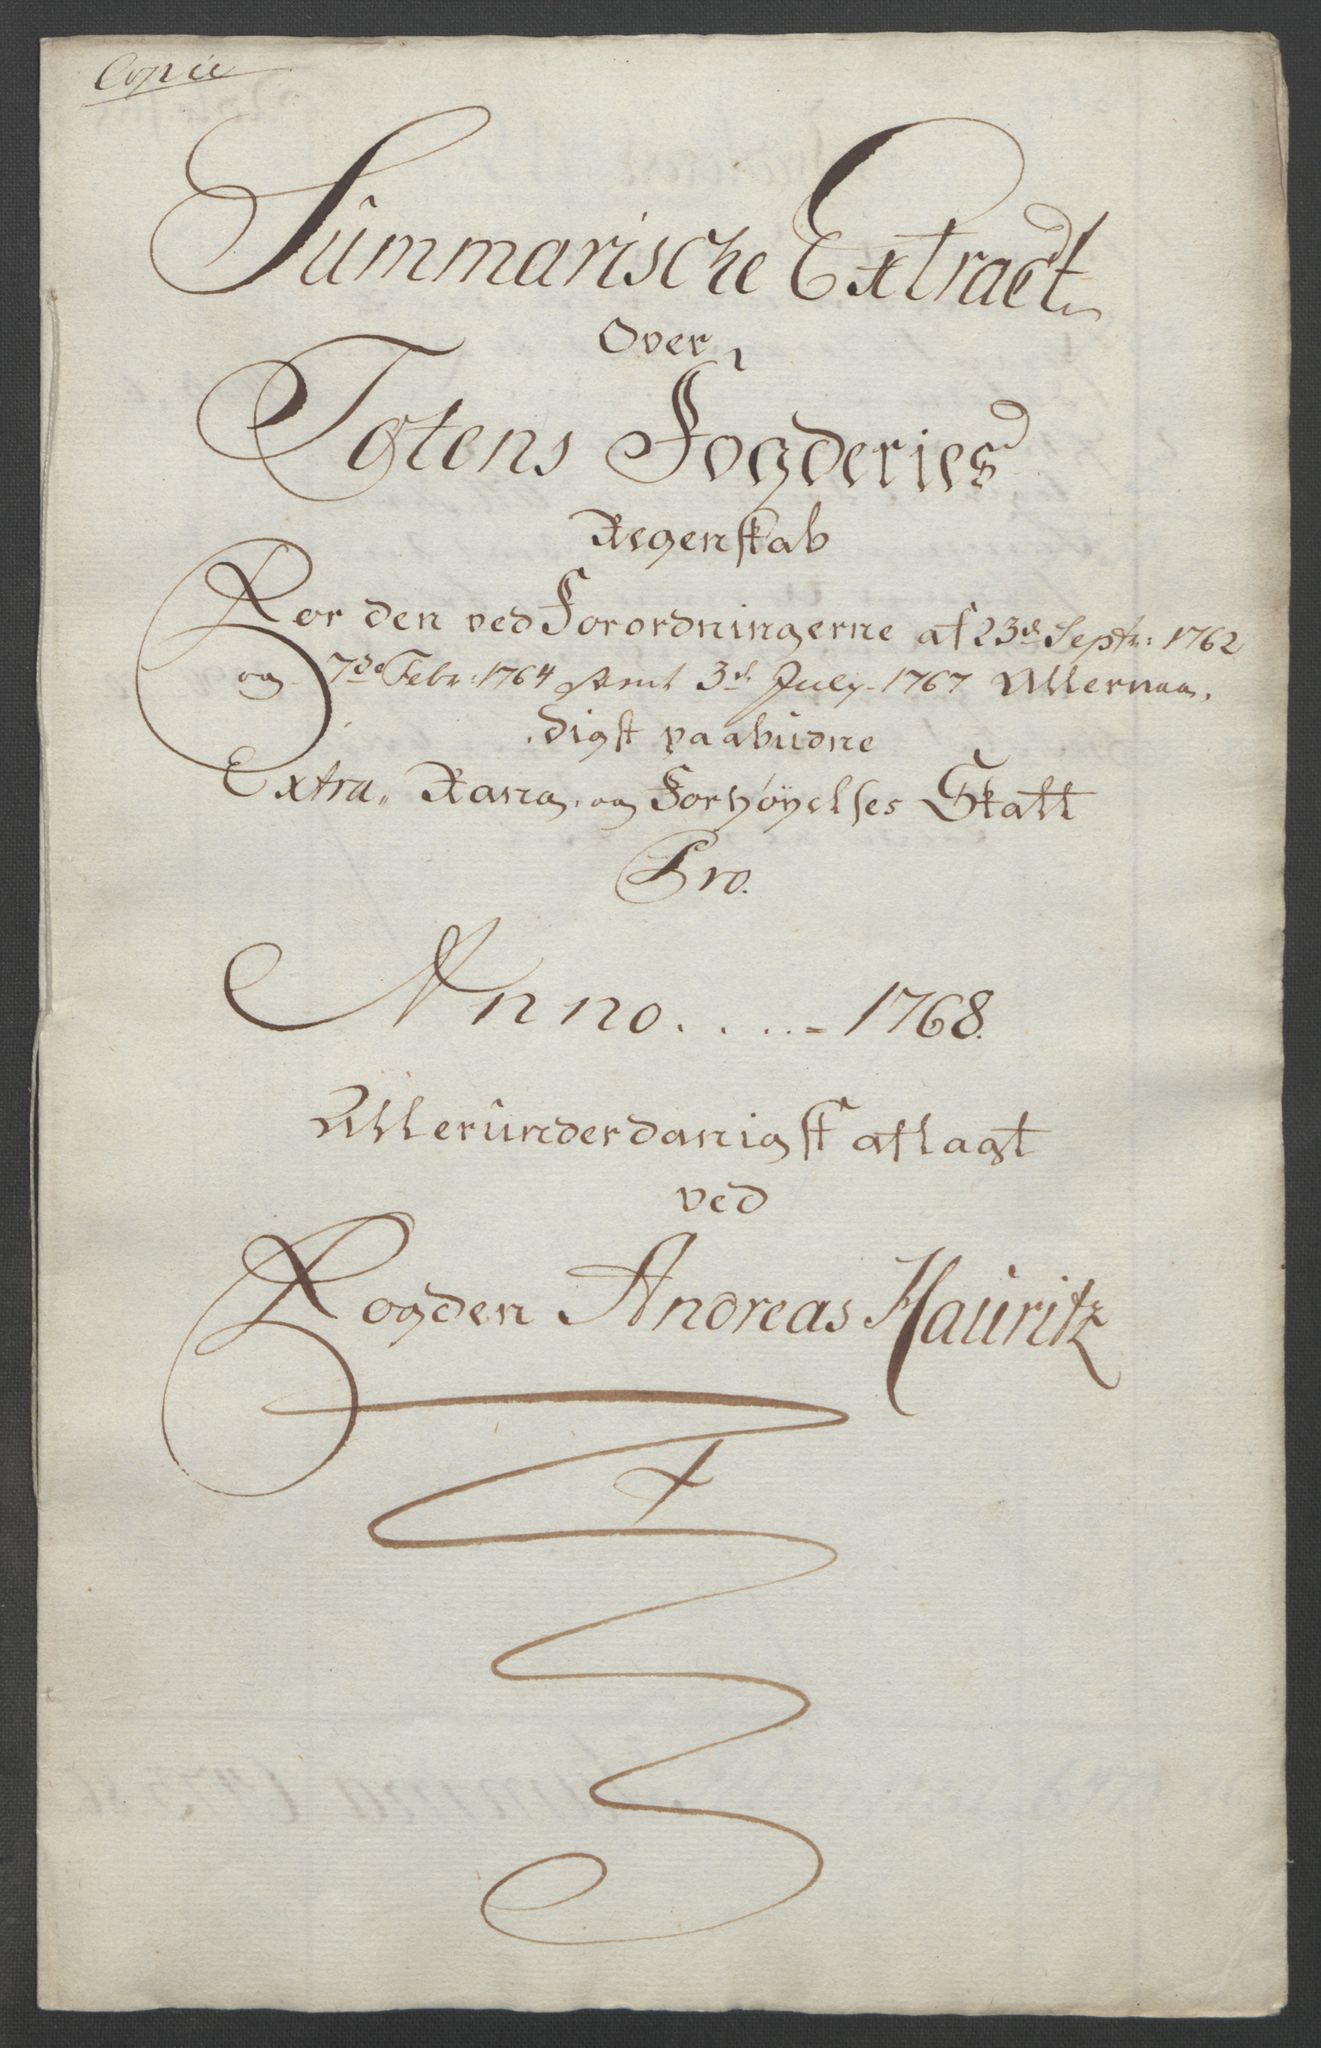 Copie
Summarische Extract
Over
Totens Fogderies
Regenskab
For den ved Forordningerne af 23de Septr: 1762
og 7de Febr: 1764 samt 3de July 1767 Allernaa-
digst paabudne
Extra, Rang, og Forhøyelses Skatt
Pro.
Anno . . . . . 1768.
Allerunderdanigst aflagt
ved
Fogden Andreas Hauritz